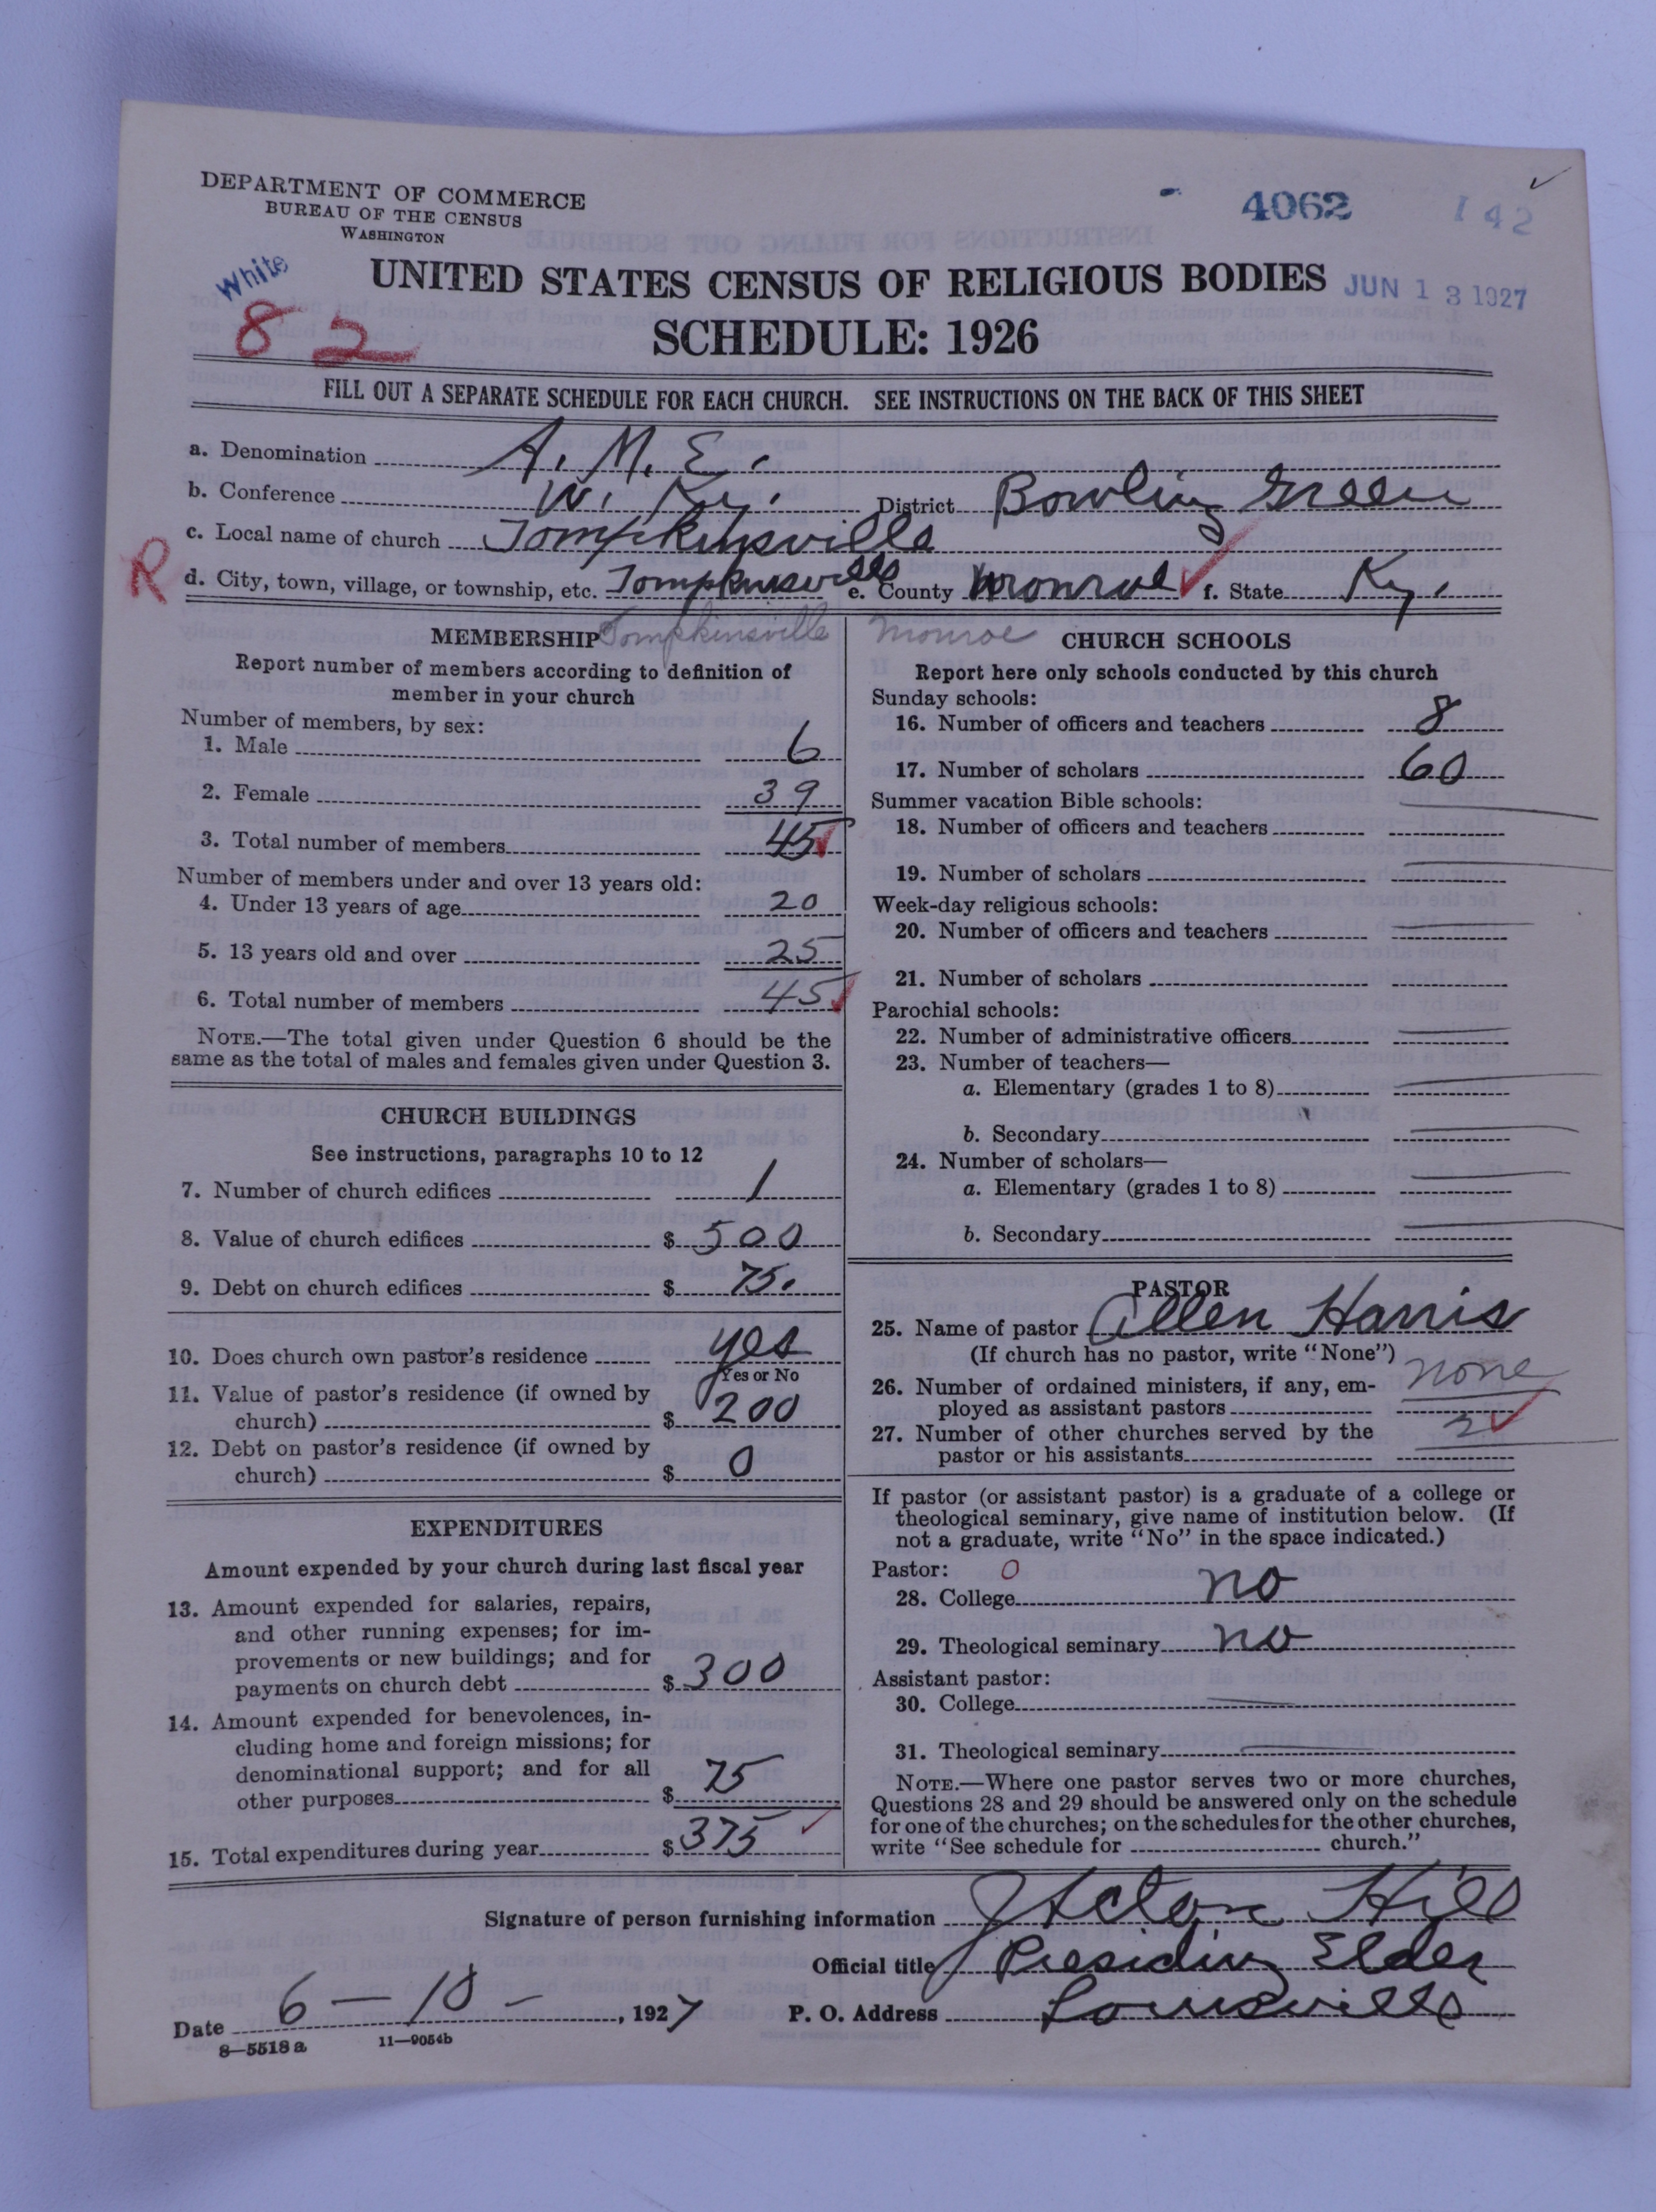 DEPARTMENT OF COMMERCE
BUREAU OF THE CENSUS
WASHINGTON
4062
142
White
82
UNITED STATES CENSUS OF RELIGIOUS BODIES
JUN 13 1927
SCHEDULE: 1926
FILL OUT A SEPARATE SCHEDULE FOR EACH CHURCH. SEE INSTRUCTIONS ON THE BACK OF THIS SHEET
a. Denomination A. M. E.
b. Conference W. Ky. District Bowling Green
c. Local name of church Tompkinsville
R
d. City, town, village, or township, etc. Tompkinsville e. County Monroe f. State Ky.
Tompkinsville Monroe
MEMBERSHIP
Report number of members according to definition of
member in your church
Number of members, by sex:
1. Male 6
2. Female 39
3. Total number of members 45
Number of members under and over 13 years old:
4. Under 13 years of age 20
5. 13 years old and over 25
6. Total number of members 45
NOTE.—The total given under Question 6 should be the
same as the total of males and females given under Question 3.
CHURCH BUILDINGS
See instructions, paragraphs 10 to 12
7. Number of church edifices 1
8. Value of church edifices $ 500
9. Debt on church edifices $ 75.
10. Does church own pastor's residence yes
Yes or No
11. Value of pastor's residence (if owned by
church) $ 200
12. Debt on pastor's residence (if owned by
church) $ 0
EXPENDITURES
Amount expended by your church during last fiscal year
13. Amount expended for salaries, repairs,
and other running expenses; for im-
provements or new buildings; and for
payments on church debt $ 300
14. Amount expended for benevolences, in-
cluding home and foreign missions; for
denominational support; and for all
other purposes $ 75
15. Total expenditures during year $ 375
CHURCH SCHOOLS
Report here only schools conducted by this church
Sunday schools:
16. Number of officers and teachers 8
17. Number of scholars 60
Summer vacation Bible schools:
18. Number of officers and teachers
19. Number of scholars
Week-day religious schools:
20. Number of officers and teachers
21. Number of scholars
Parochial schools:
22. Number of administrative officers
23. Number of teachers—
a. Elementary (grades 1 to 8)
b. Secondary
24. Number of scholars—
a. Elementary (grades 1 to 8)
b. Secondary
PASTOR
25. Name of pastor Allen Harris
(If church has no pastor, write "None")
26. Number of ordained ministers, if any, em-
ployed as assistant pastors none
27. Number of other churches served by the
pastor or his assistants 2
If pastor (or assistant pastor) is a graduate of a college or
theological seminary, give name of institution below. (If
not a graduate, write "No" in the space indicated.)
Pastor: 0
28. College no
29. Theological seminary no
Assistant pastor:
30. College
31. Theological seminary
NOTE.—Where one pastor serves two or more churches,
Questions 28 and 29 should be answered only on the schedule
for one of the churches; on the schedules for the other churches,
write "See schedule for church."
Signature of person furnishing information J Acton Hill
Official title Presiding Elder
Date 6-10-, 1927 P. O. Address Louisville
8—5518a 11—9054b